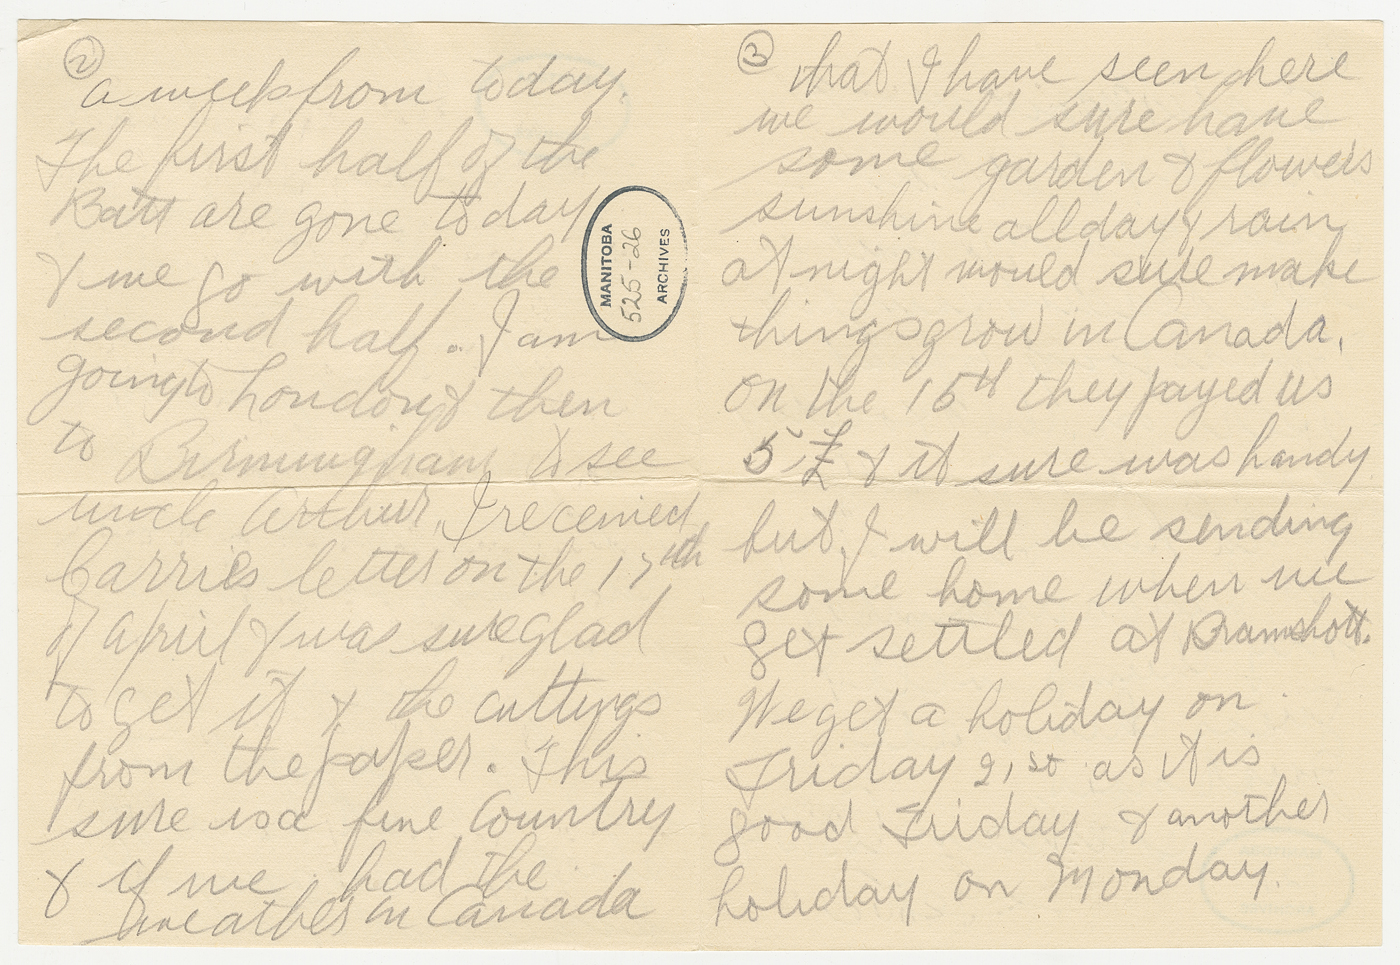 2
a week from today.
The first half of the
Batt are gone today
& we go with the
second half. I am
going to London & then
to Birmingham to see
uncle Arthur. I received
Carries letter on the 17th
of April & was sure glad
to get it & the cuttings
from the paper. This
sure is a fine Country
& if we had the
weather in Canada
MANITOBA
525-26
ARCHIVES
3
that I have seen here
we would sure have
some garden & flowers
sunshine all day & rain
at night would sure make
things grow in Canada.
On the 15th they payed us
5 £ & it sure was handy
but I will be sending
some home when we
get settled at Bramshott.
We get a holiday on
Friday 21st as it is
good Friday & another
holiday on Monday.